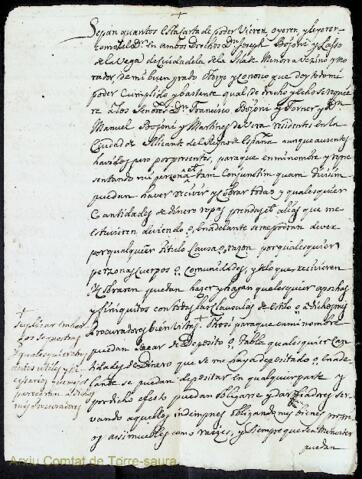 Sepan quantos esta carta de poder Vieren, oyeren, y leyeren
como el Dr. en ambos Drechos Dn. Joseph Bojoni y Lasso
de la Vega de Ciudadela de la Isla de Menorca Vezino y mo-
rador, de mi buen grado otorgo y conosco que doy todo mi
poder Cumplido y bastante qual de drecho y echo se requie-
re a los Señores Dn. Francisco Bojoni y Torner y Dn.
Manuel Bojoni y Martines de Vera residentes en la
Ciudad de Alicante del Reyno de España aunque ausentes
havidos pero por presentes, para que en mi nombre y repre-
sentando mi persona tam Conjunctim quam Divisim
puedan haver recivir y cobrar todas y qualesquier
Cantidades de Dinero ropas prendas etc alias que me
estuvieren deviendo o, en adelante se me podran dever
por qualquier titulo Causa, o, razon por qualesquier
personas Cuerpos o, Comunidades, y de lo que recivieren
y Cobraren puedan hazer y hagan qualesquier apochas
y finiquitos con todas las Clausulas de estilo a Dichos mis
Procuradores bien vistas. Item para que en mi nombre
puedan sacar de Deposito o, tabla qualesquier Can-
tidades de Dinero que se me haya depositado o, en ade-
lante se puedan depositar en qualquier parte y
por dicho efecto puedan obligarse y dar fiadores ser-
vando aquellos indemnes obligando mis bienes, presen-
tes assi muebles como raizes, y siempre que sea menester
puedan
Suplicar emba-
ros sequestras
de qualesquier ren-
y ne-
cessarias
mis Procuradores
Arxiu Comtat de Torre-saura